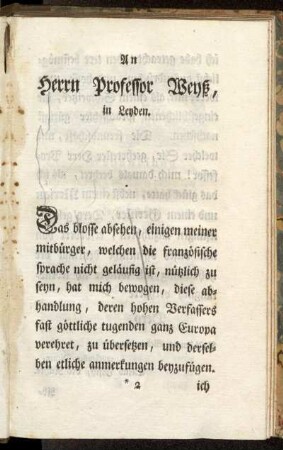 An
Herrn Professor Weyß,
in Leyden.
Das blosse absehen, einigen meiner
mitbürger, welchen die französische
sprache nicht geläufig ist, nützlich zu
seyn, hat mich bewogen, diese ab-
handlung, deren hohen Verfassers
fast göttliche tugenden ganz Europa
verehret, zu übersetzen, und dersel-
ben etliche anmerkungen beyzufügen.
* 2 ich